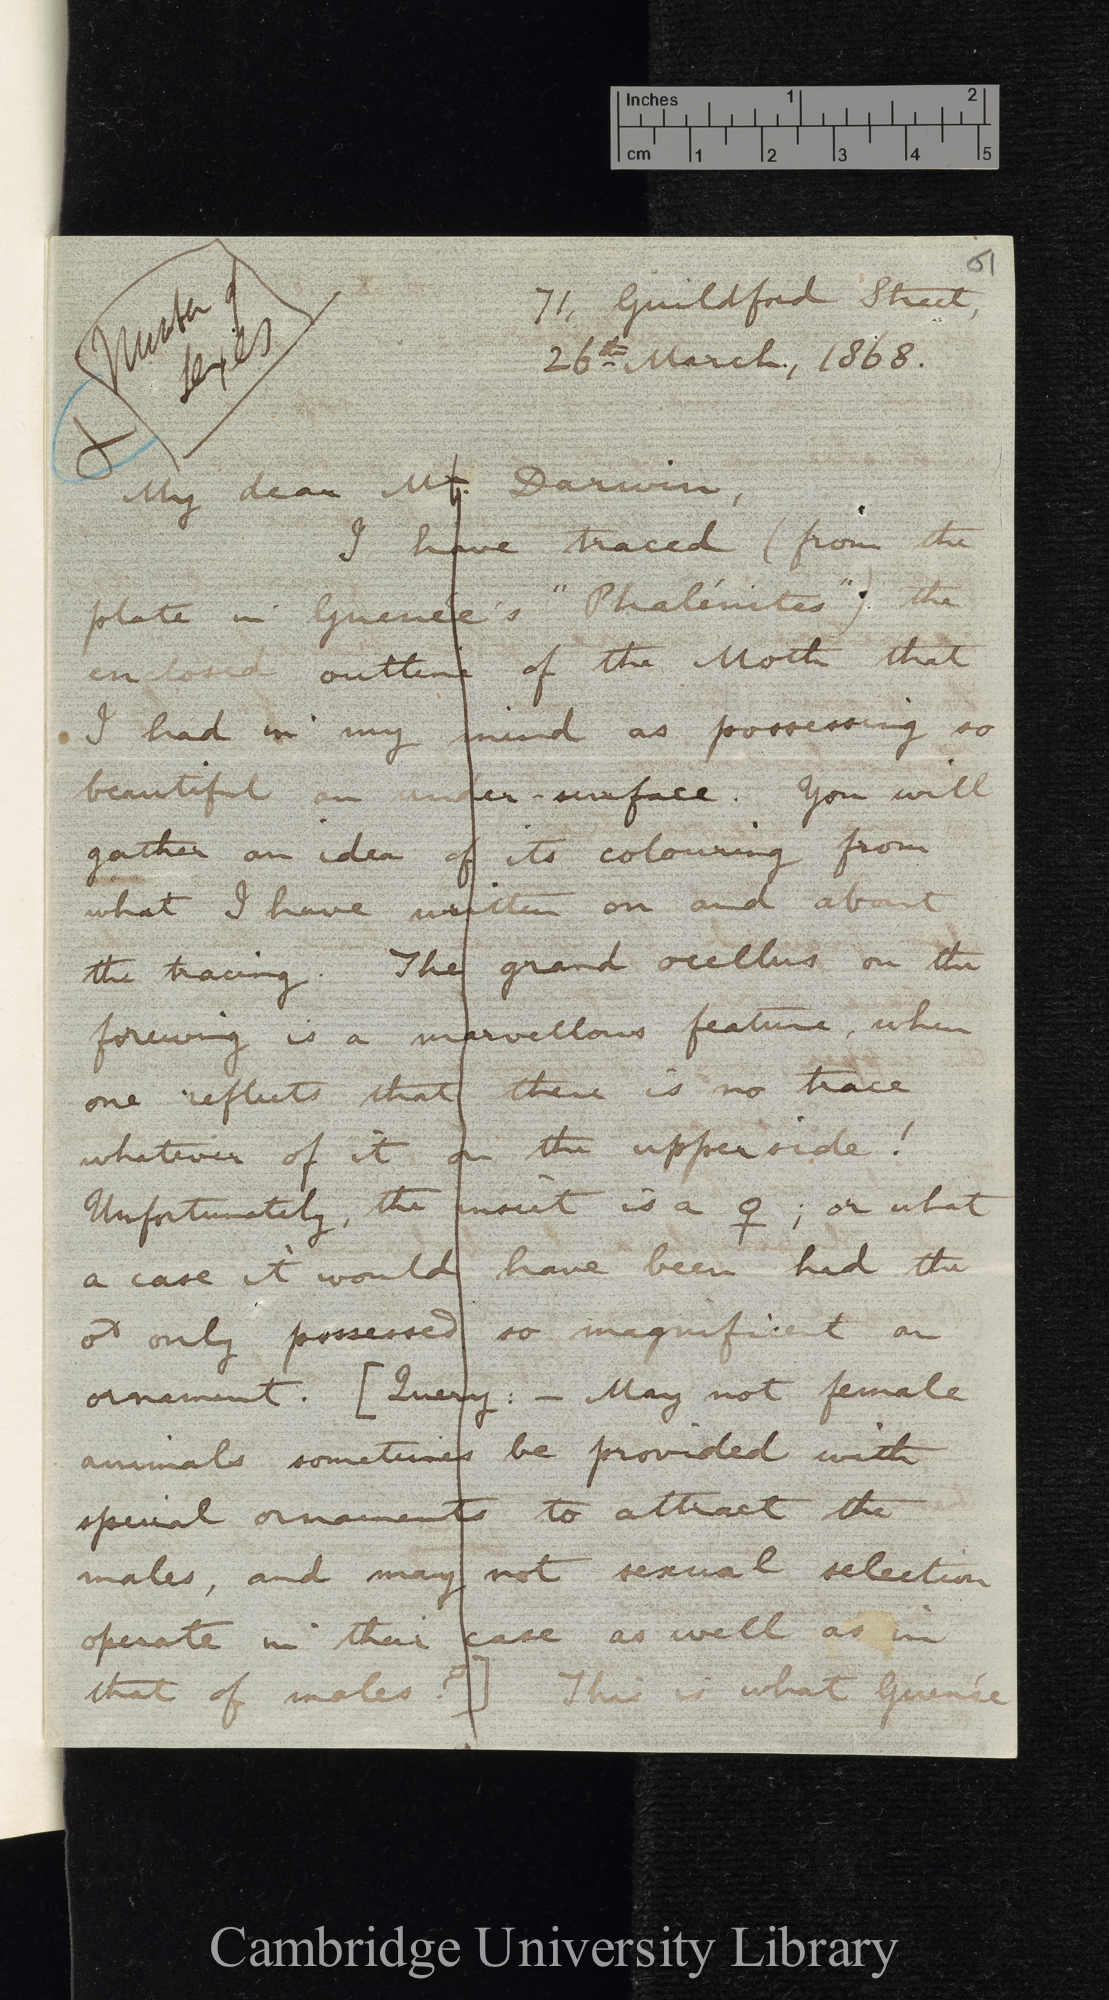 Inches 1 2
cm 1 2 3 4 5
51
Number of
Sexes
71, Guildford Street,
26th March, 1868.
My dear Mr. Darwin,
I have traced (from the
plate in Guenée's "Phalénites") the
enclosed outline of the Moth that
I had in my mind as possessing so
beautiful an under-surface. You will
gather an idea of its colouring from
what I have written on and about
the tracing. The grand ocellus on the
forewing is a marvellous feature, when
one reflects that there is no trace
whatever of it on the upperside!
Unfortunately, the insect is a ♀; or what
a case it would have been had the
♂ only possessed so magnificent an
ornament. [Query: – May not female
animals sometimes be provided with
special ornaments to attract the
males, and may not sexual selection
operate in their case as well as in
that of males?] This is what Guenée
Cambridge University Library